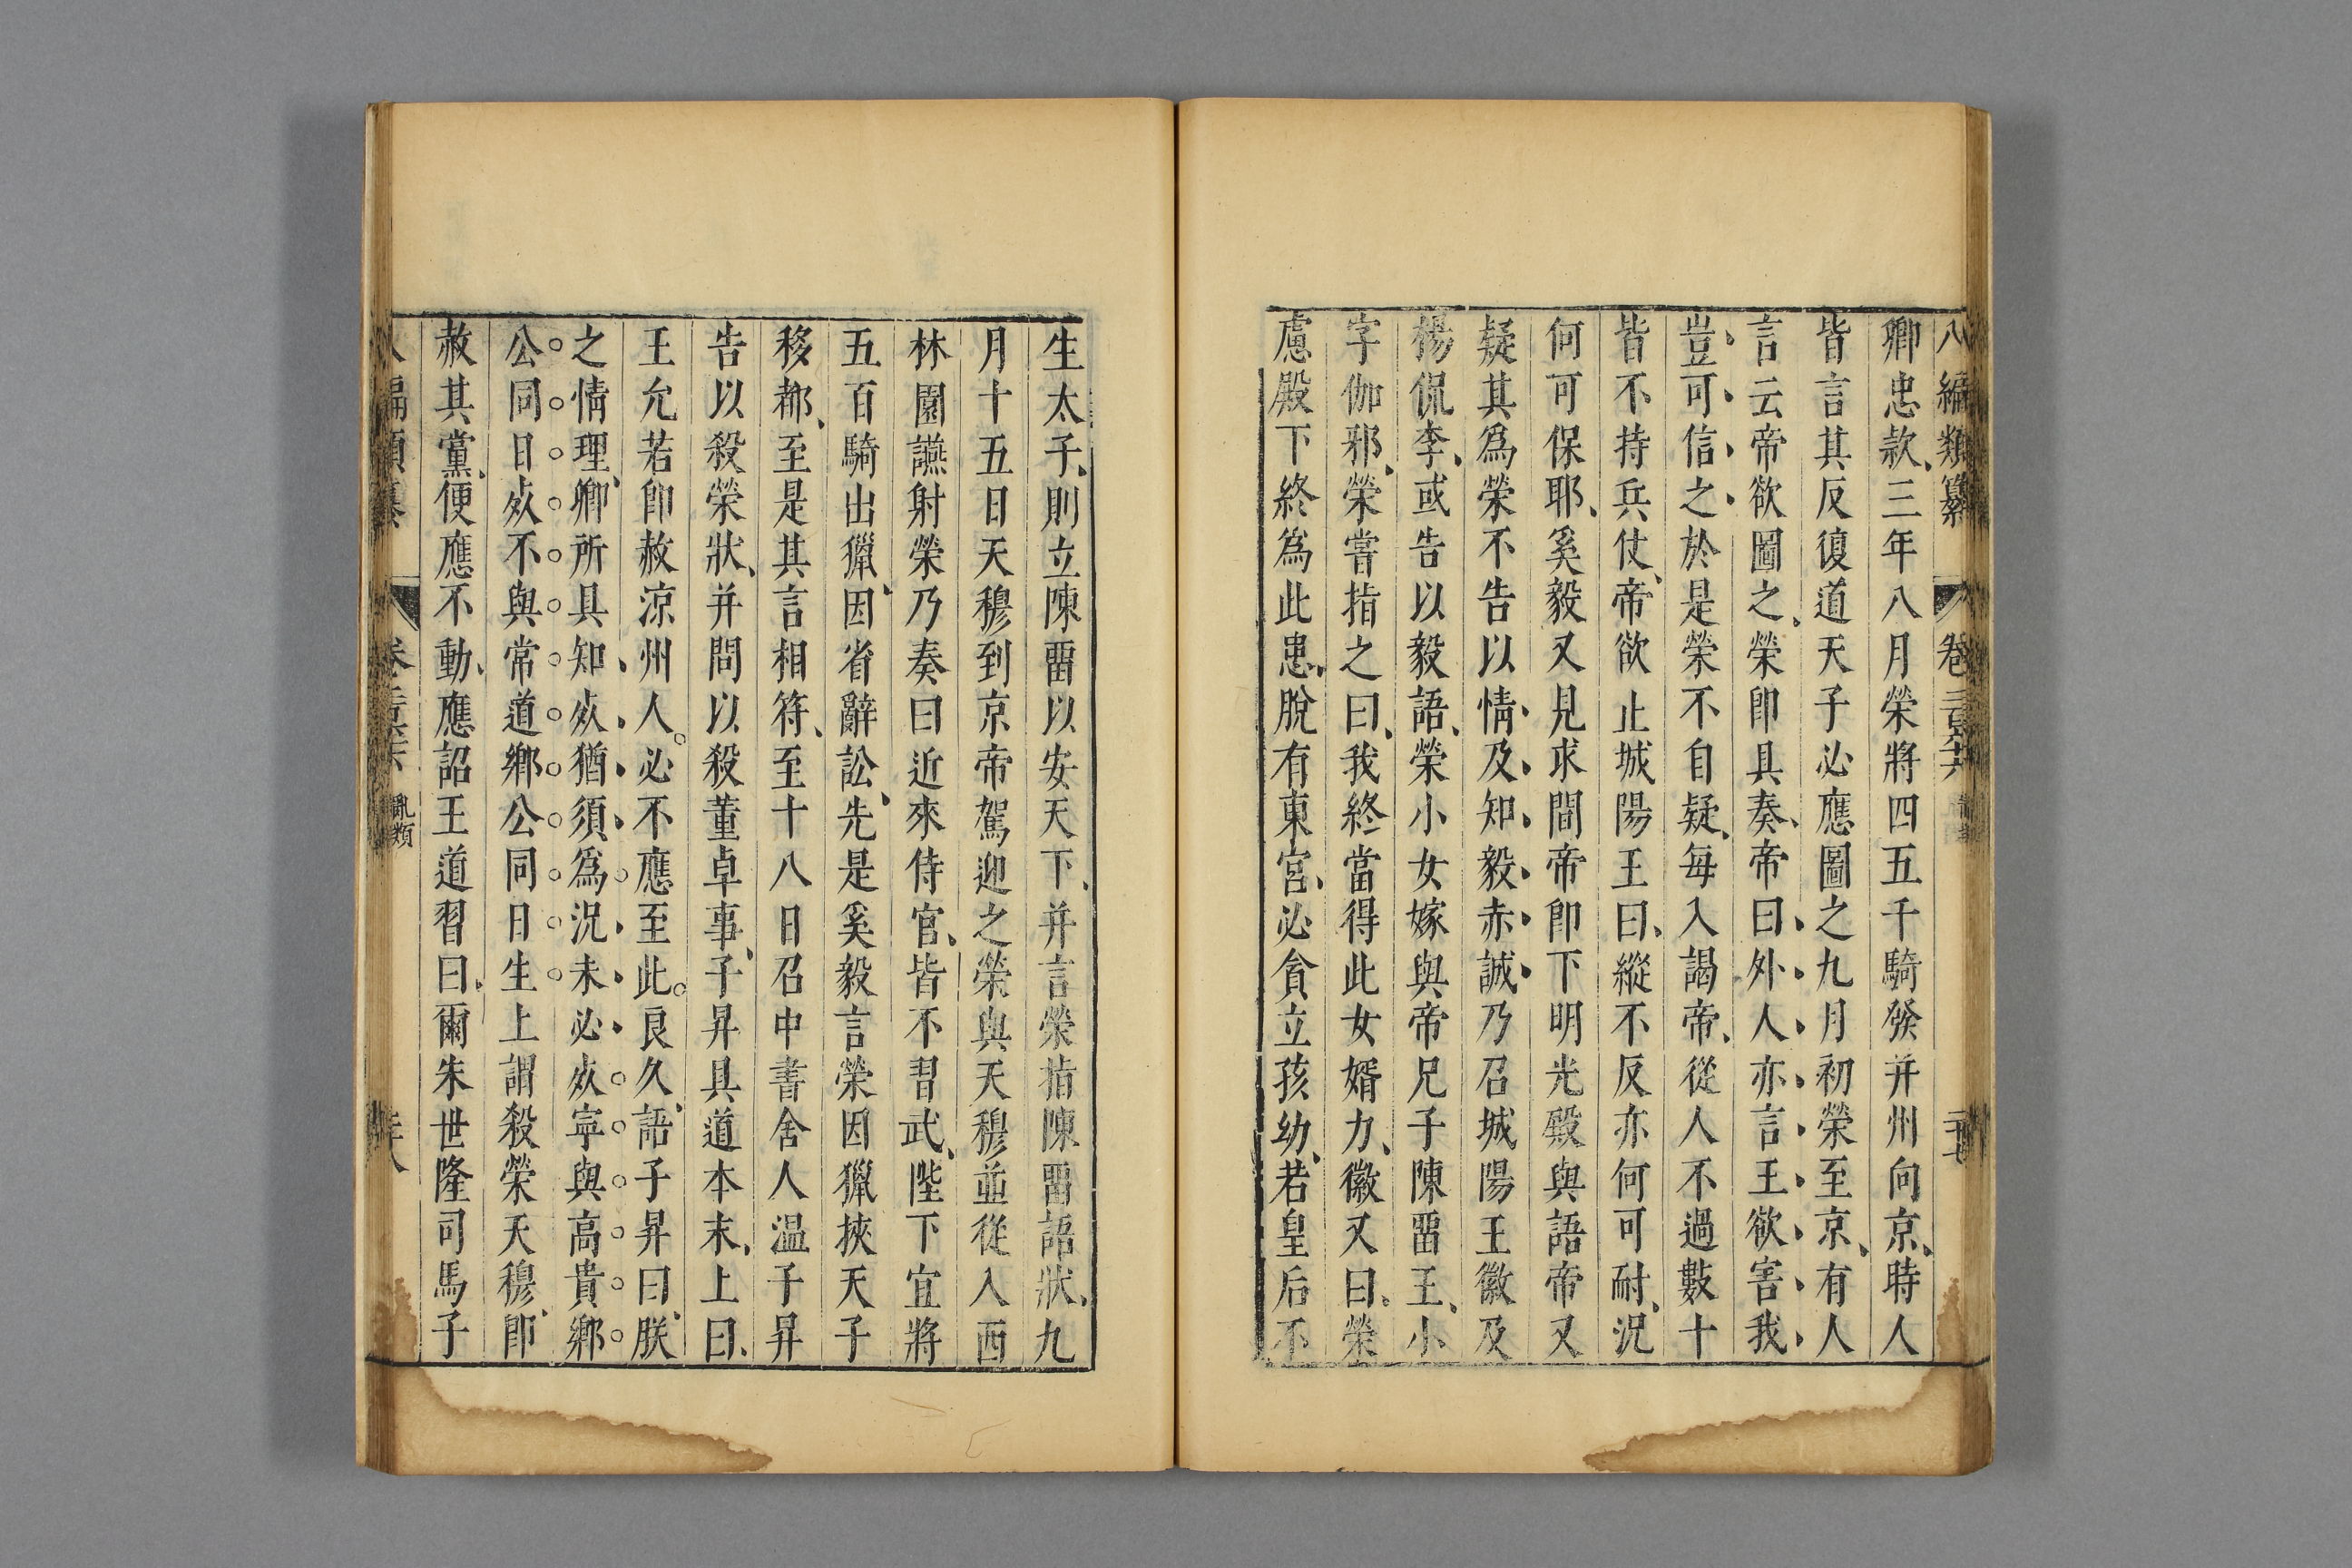 八編類纂 卷二百六 二十七
卿忠款三年八月榮將四五千騎發并州向京時人
皆言其反復道天子必應圖之九月初榮至京有人
言云帝欲圖之榮卽具奏帝曰外人亦言王欲害我
豈可信之於是榮不自疑每入謁帝從人不過數十
皆不持兵仗帝欲止城陽王曰縱不反亦何可耐況
何可保耶奚毅又見求間帝卽下明光殿與語帝又
疑其爲榮不告以情及知毅赤誠乃召城陽王徽及
楊侃李或告以毅語榮小女嫁與帝兄子陳畱王小
字伽邪榮嘗指之曰我終當得此女婿力徽又曰榮
慮殿下終爲此患脫有東宮必貪立孩幼若皇后不
生太子則立陳畱以安天下并言榮指陳畱語狀九
月十五日天穆到京帝駕迎之榮與天穆並從入西
林園讌射榮乃奏曰近來侍官皆不習武陛下宜將
五百騎出獵因省辭訟先是奚毅言榮因獵挾天子
移都至是其言相符至十八日召中書舍人温子昇
告以殺榮狀并問以殺董卓事子昇具道本末上曰
王允若卽赦涼州人必不應至此良久語子昇曰朕
之情理卿所具知㱔猶須爲況未必㱔寧與高貴鄉
公同日㱔不與常道鄉公同日生上謂殺榮天穆卽
赦其黨便應不動應詔王道習曰爾朱世隆司馬子
八編類纂 亂類